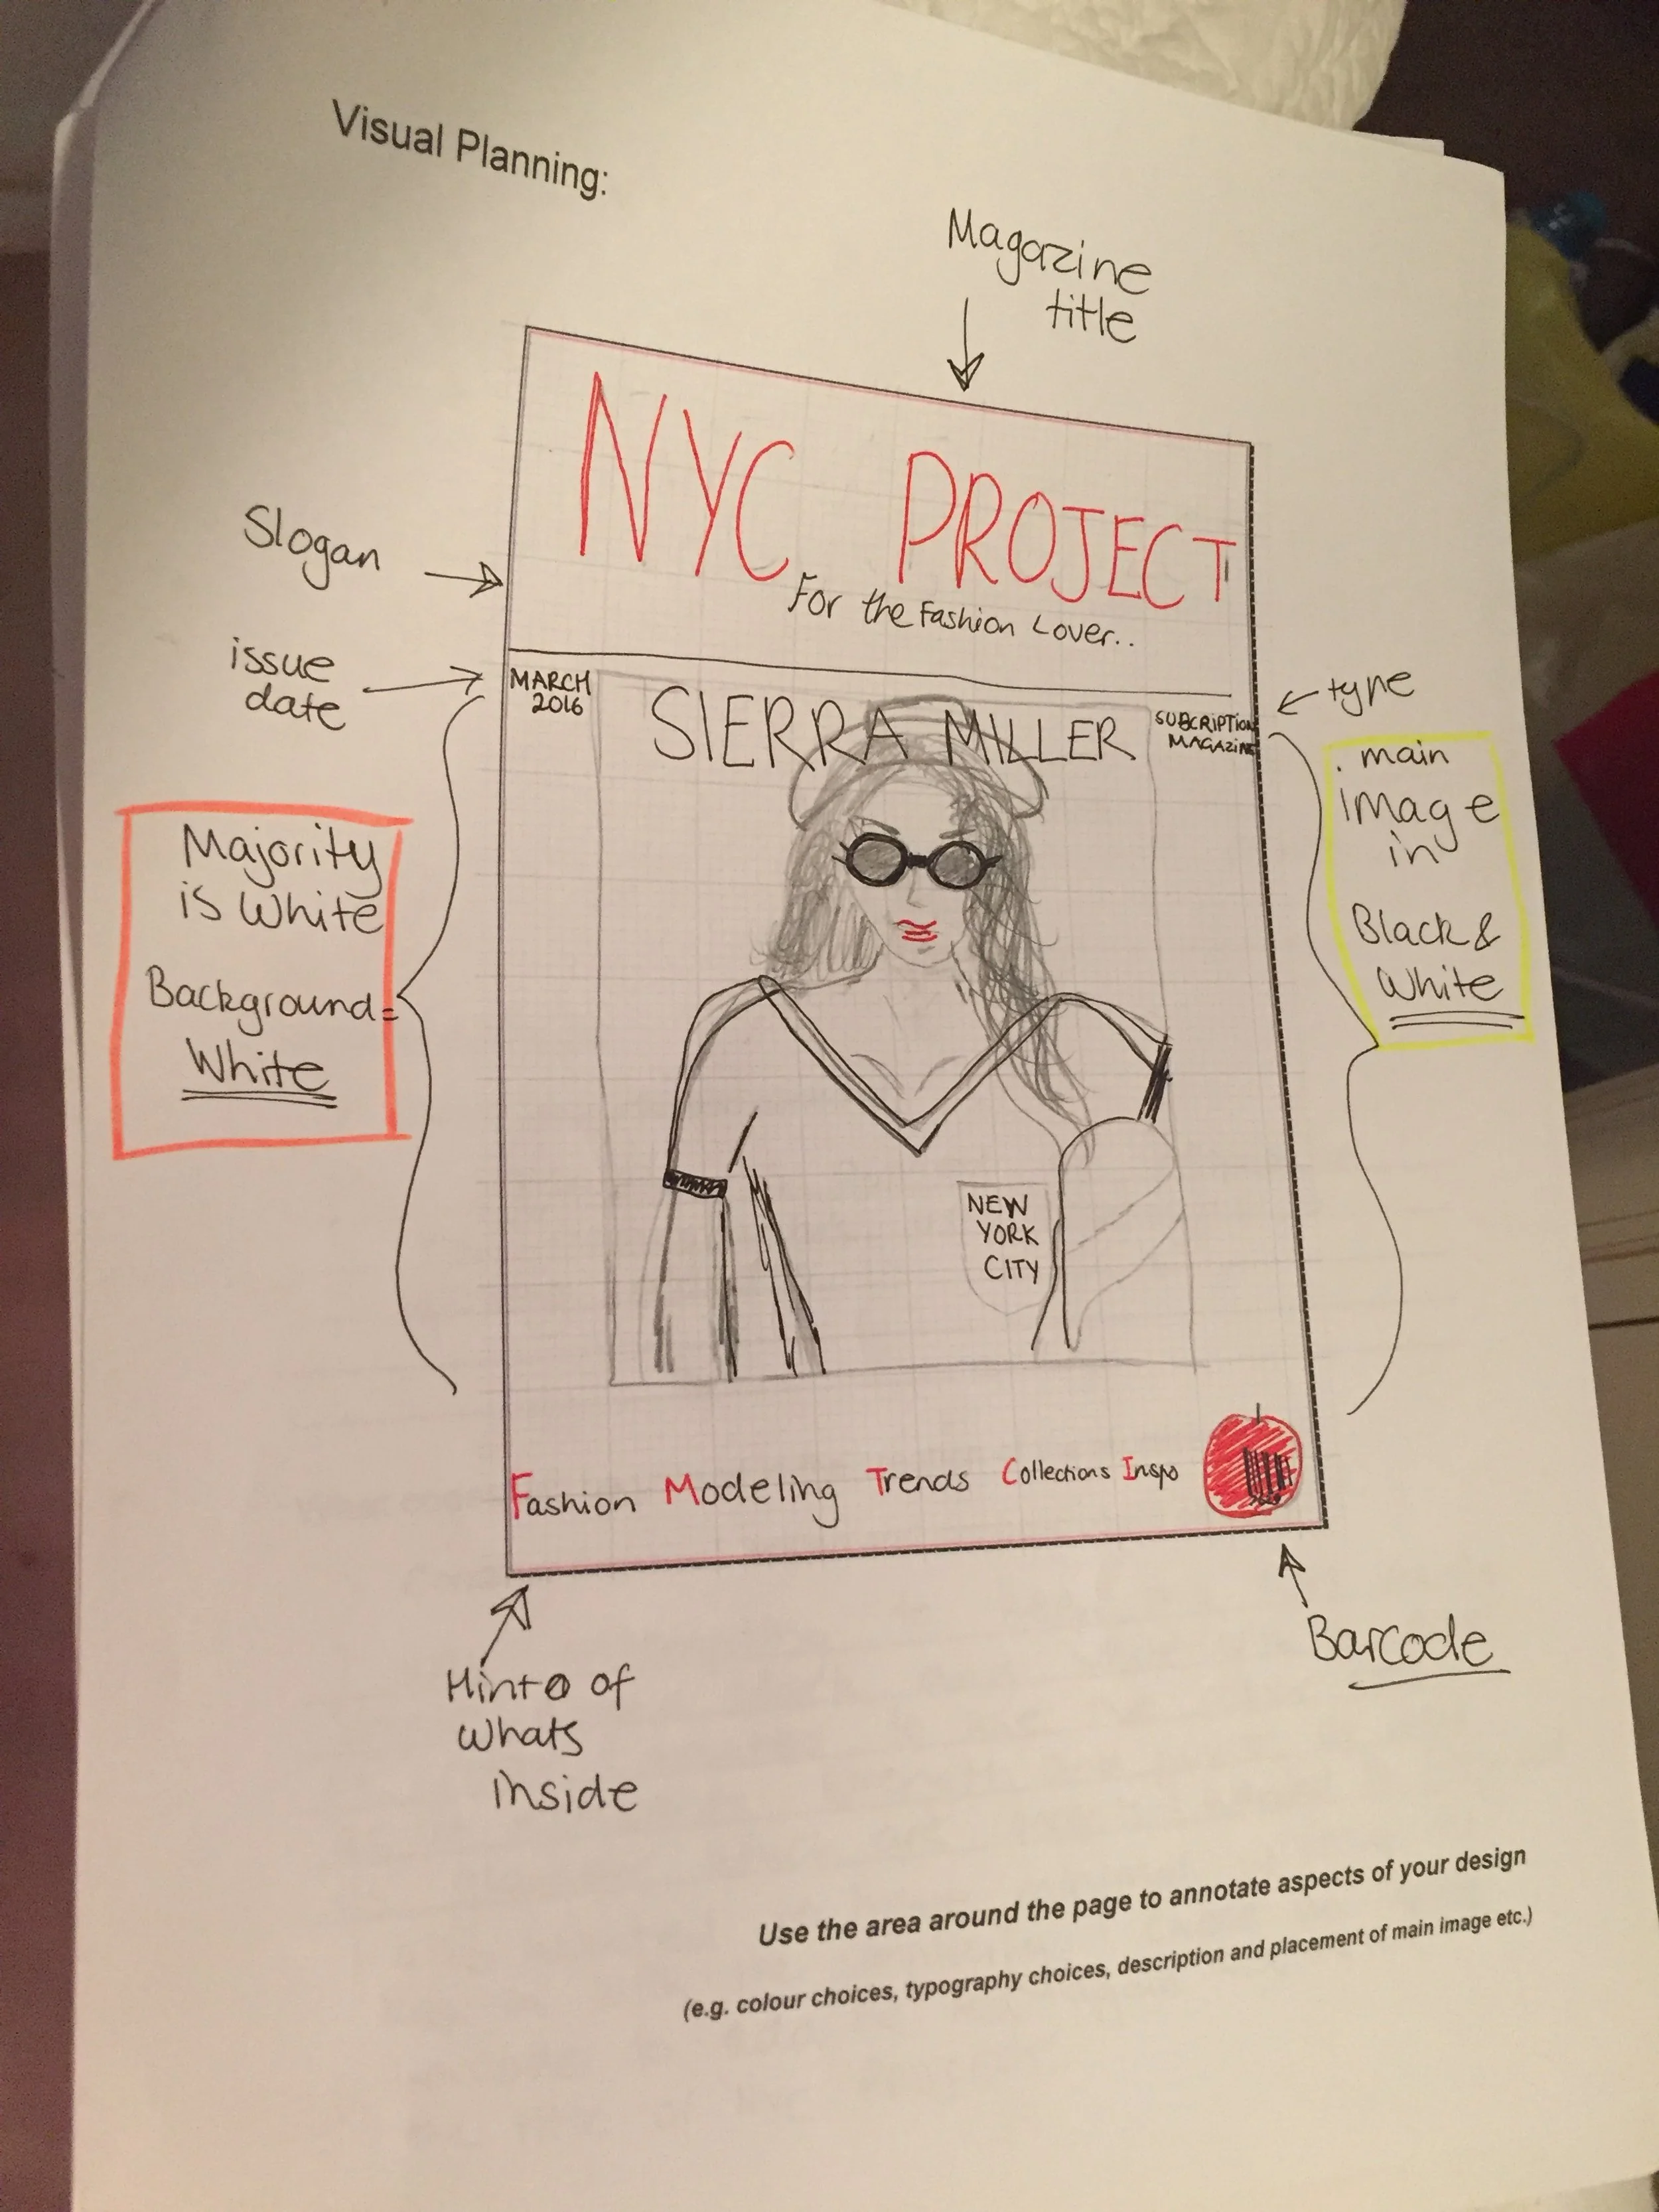 Visual Planning:
Magazine
title
NYC PROJECT
For the Fashion Lover..
Slogan
issue
date
MARCH
2016
SIERRA MILLER
SUBCRIPTION
MAGAZINE
type
Majority
is White
Background=
White
. main
image
in
Black &
White
NEW
YORK
CITY
Fashion Modeling Trends Collections Inspo
Hint of
Whats
inside
Barcode
Use the area around the page to annotate aspects of your design
(e.g. colour choices, typography choices, description and placement of main image etc.)